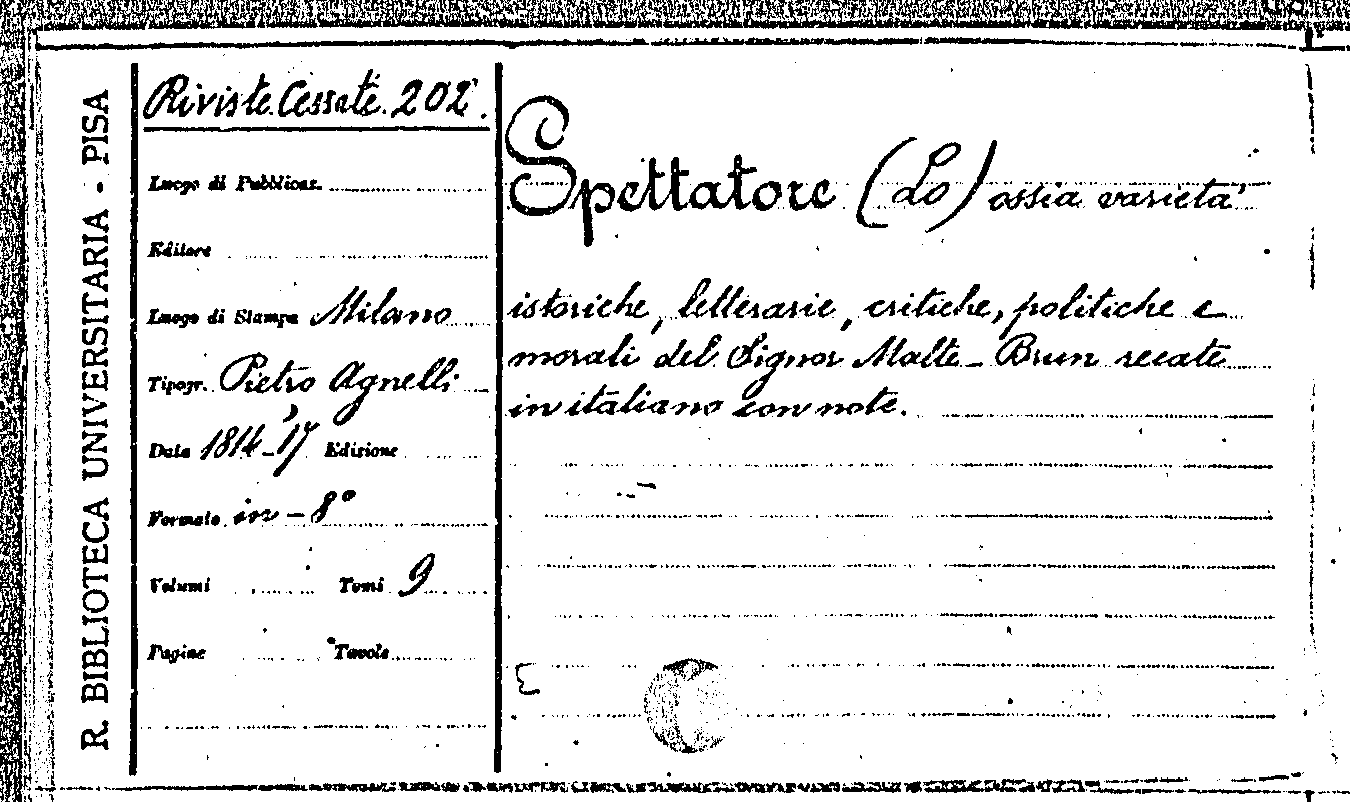 R. BIBLIOTECA UNIVERSITARIA - PISA
Riviste Cessate. 202.
Luogo di Pubblicaz.
Editore
Luogo di Stampa Milano
Tipogr. Pietro Agnelli
Data 1814-17 Edizione
Formato in-8°
Volumi Tomi 9
Pagine Tavole
Spettatore (Lo) ossia varietà
istoriche, letterarie, critiche, politiche e
morali del Signor Malte-Brun recate
in italiano con note.